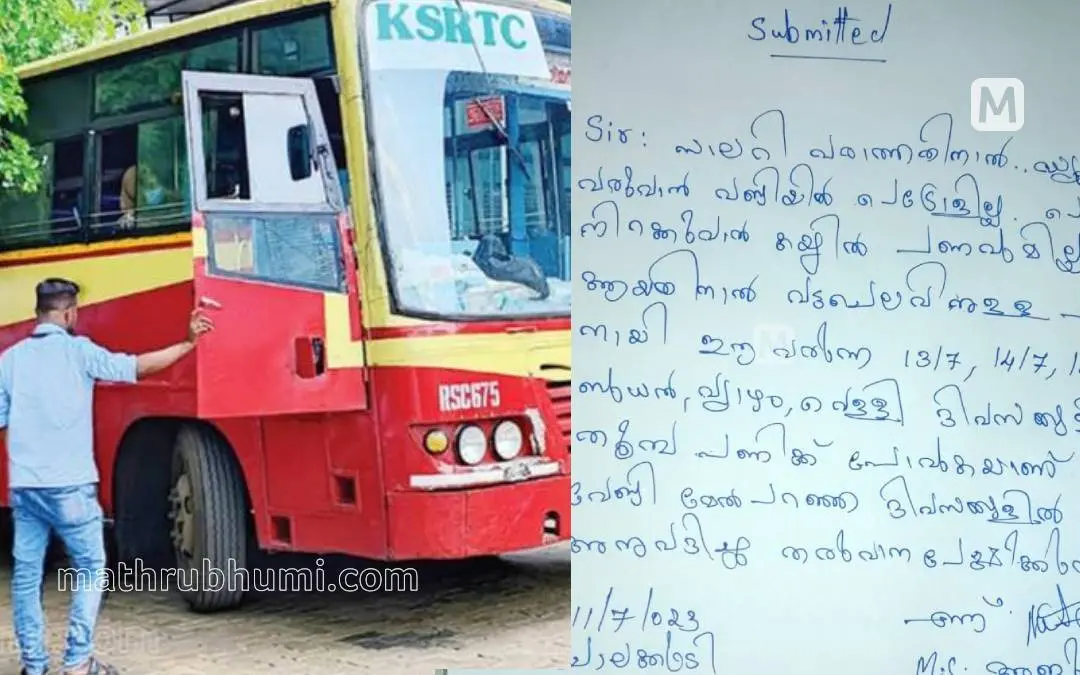 KSRTC
RSC675
mathrubhumi.com
Submitted
M
Sir: സാലറി വരാത്തതിനാൽ..
വരുവാൻ വണ്ടിയിൽ പെട്രോളില്ല. പെ
നിറക്കുവാൻ കയ്യിൽ പണവുമില്ല
ആയതിനാൽ വട്ടചെലവിനുള്ള
നായി ഈ വരുന്ന 13/7, 14/7, 1
ബുധൻ, വ്യാഴം, വെള്ളി ദിവസങ്ങ
തൂമ്പ പണിക്ക് പോവുകയാണ്
മേൽപറഞ്ഞ ദിവസങ്ങളിൽ
അനുവദിച്ചു തരുവാന
11/7/023
എന്ന്
ചാലക്കുടി
M.C.